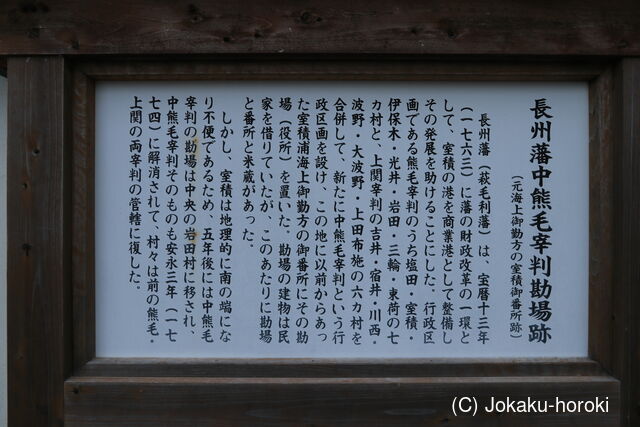 長州藩中熊毛宰判勘場跡
(元海上御勤方の室積御番所跡)
長州藩(萩毛利藩)は、宝暦十三年
(一七六三)に藩の財政改革の一環と
して、室積の港を商業港として整備し
その発展を助けることにした。行政区
画である熊毛宰判のうち塩田・室積・
伊保木・光井・岩田・三輪・東荷の七
カ村と、上関宰判の吉井・宿井・川西・
波野・大波野・上田布施の六カ村を
合併して、新たに中熊毛宰判という行
政区画を設け、この地に以前からあっ
た室積浦海上御勤方の御番所にその勘
場(役所)を置いた。勘場の建物は民
家を借りていたが、このあたりに勘場
と番所と米蔵があった。
しかし、室積は地理的に南の端にな
り不便であるため、五年後には中熊毛
宰判の勘場は中央の岩田村に移され、
中熊毛宰判そのものも安永三年(一七
七四)に解消されて、村々は前の熊毛・
上関の両宰判の管轄に復した。
(C) Jokaku-horoki